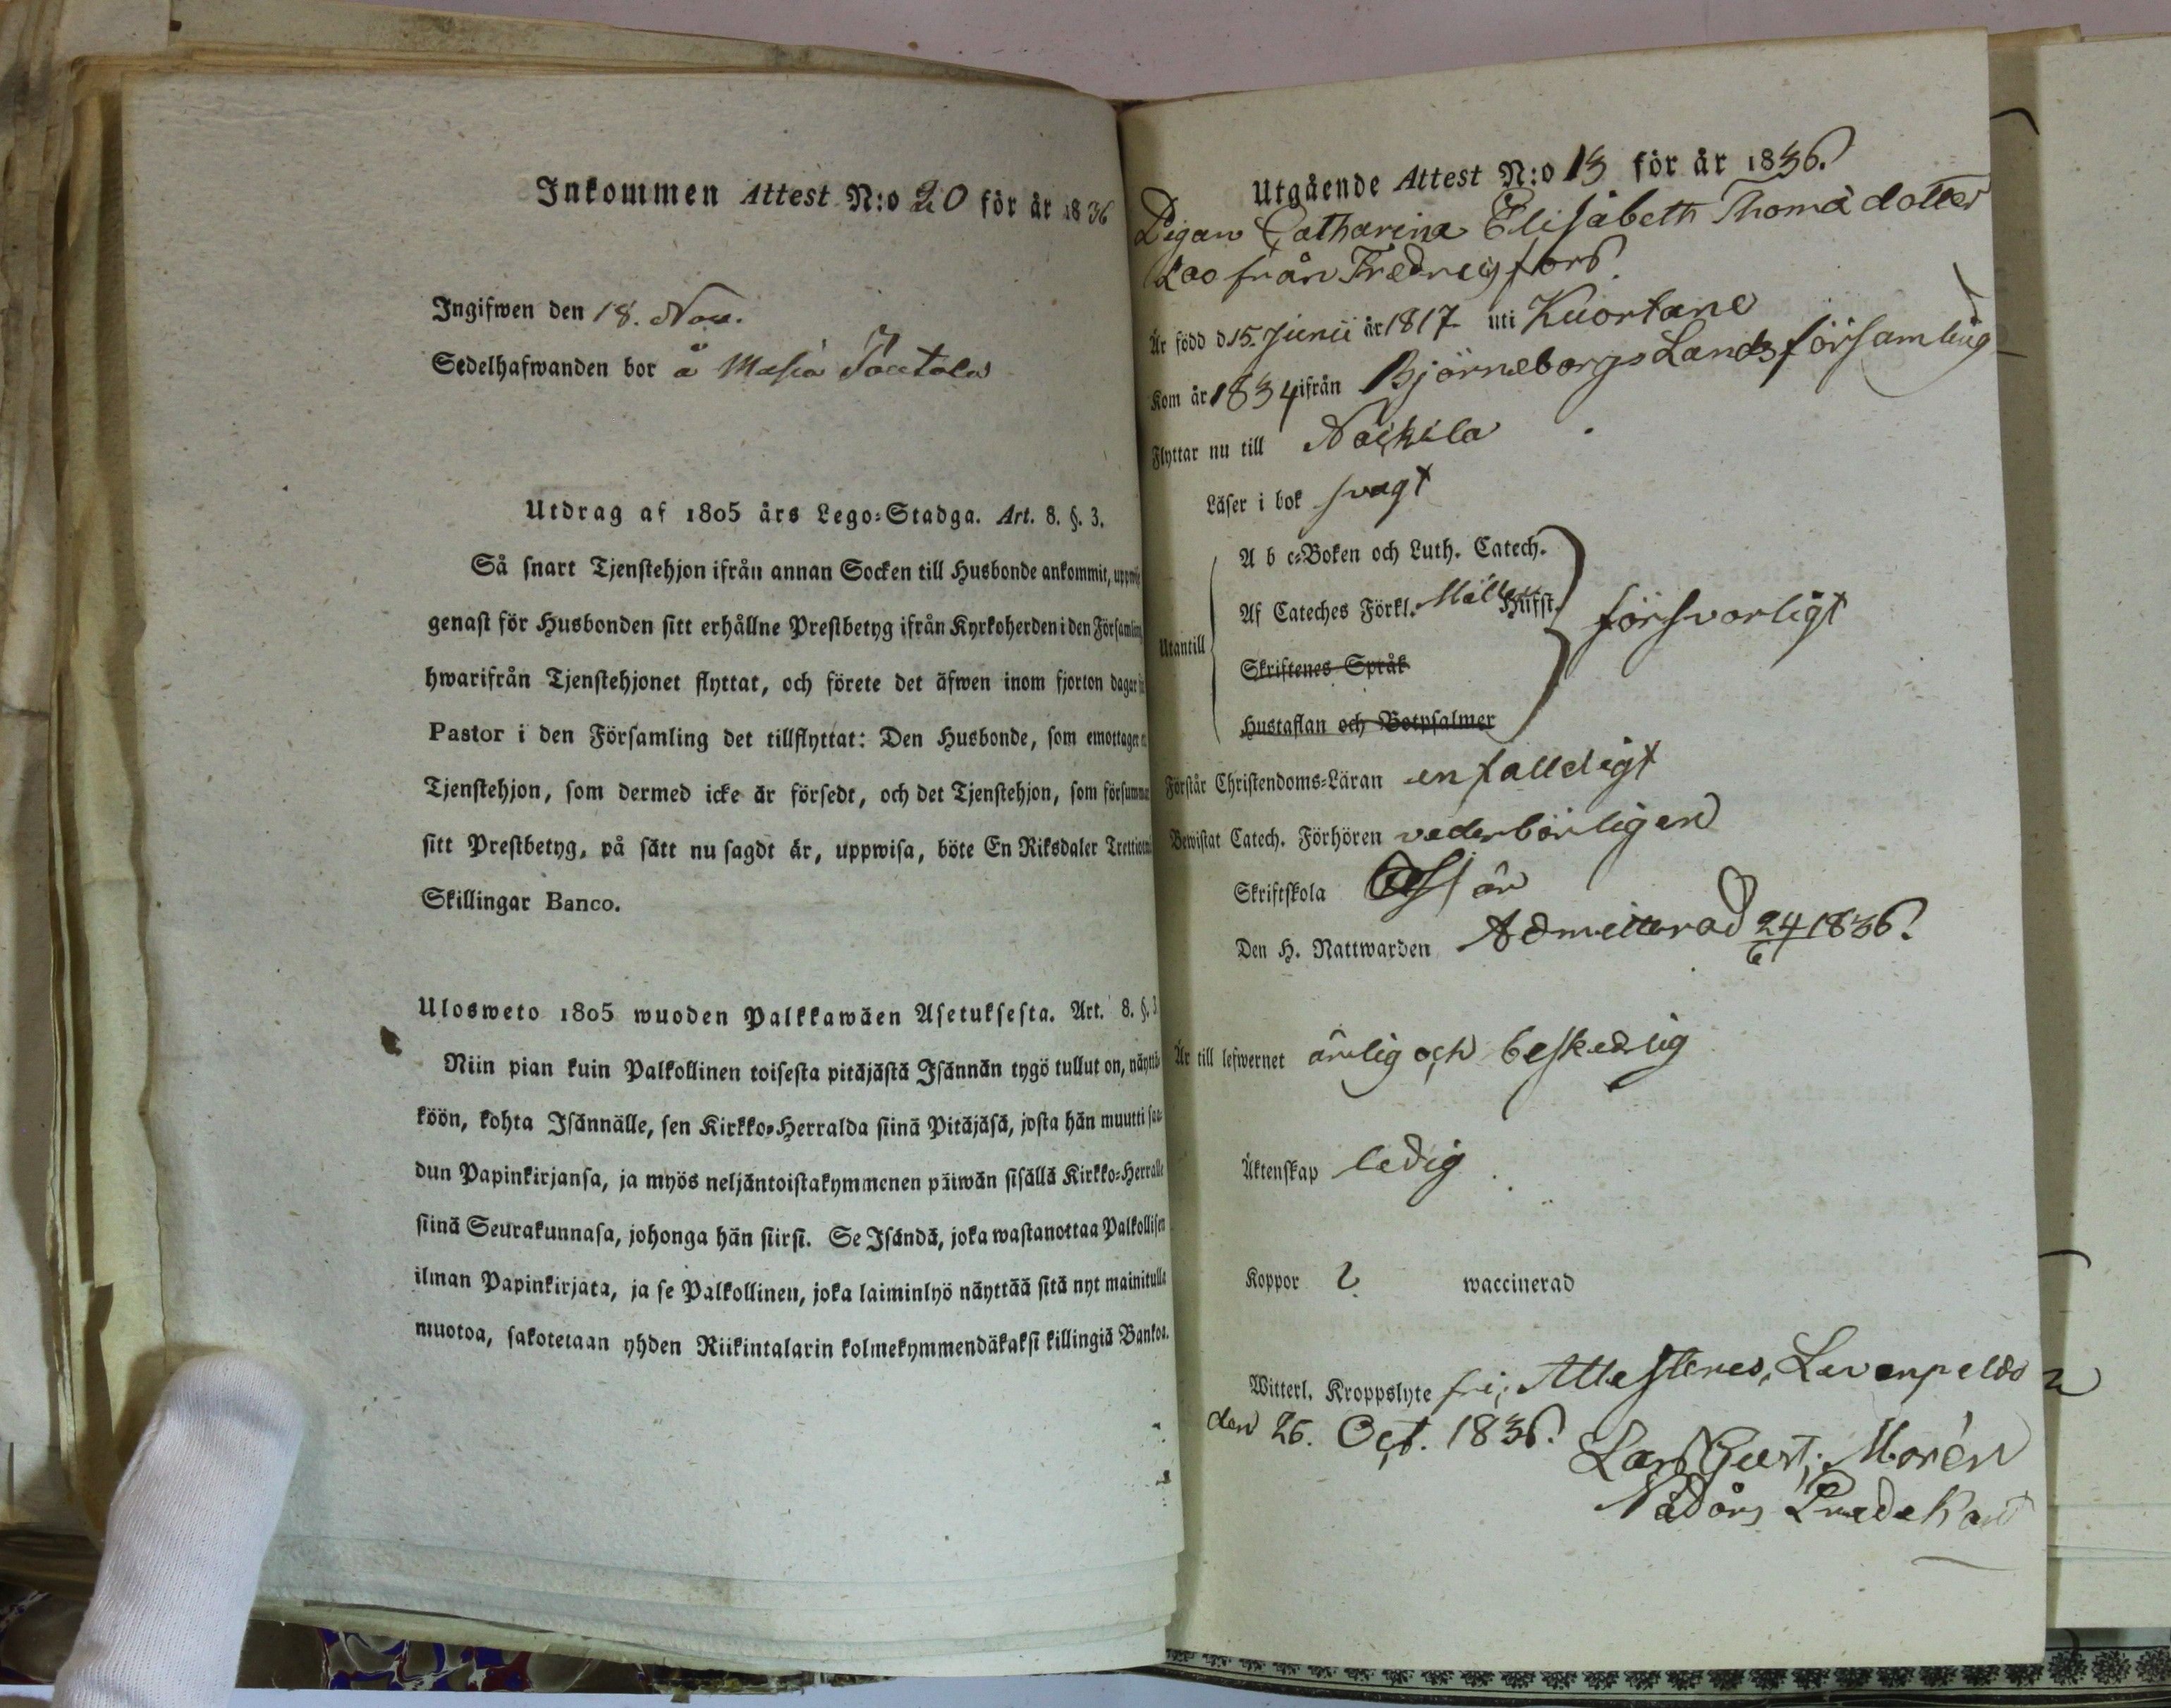 Inkommen Attest N:o 20 för år 1836
Ingifwen den 18. Nov.
Sedelhafwanden bor å Masia
Utdrag af 1805 års Lego-Stadga. Art. 8. §. 3.
Så snart Tjenstehjon ifrån annan Socken till Husbonde ankommit,
genast för Husbonden sitt erhållne Prestbetyg ifrån Kyrkoherden i den Församling,
hwarifrån Tjenstehjonet flyttat, och förete det äfwen inom fjorton dagar
Pastor i den Församling det tillflyttat: Den Husbonde, som emottager
Tjenstehjon, som dermed icke är försedt, och det Tjenstehjon, som försummar
sitt Prestbetyg, på sätt nu sagdt är, uppwisa, böte En Riksdaler
Skillingar Banco.
Ulosweto 1805 wuoden Palkkawäen Asetuksesta. Art. 8. §. 3
Niin pian kuin Palkollinen toisesta pitäjästä Isännän tygö tullut on, näyttä-
köön, kohta Isännälle, sen Kirkko-Herralda siinä Pitäjäsä, josta hän muutti saa-
dun Papinkirjansa, ja myös neljäntoistakymmenen päiwän sisällä Kirkko-Herralle
siinä Seurakunnasa, johonga hän siirsi. Se Isändä, joka wastanottaa Palkollisen
ilman Papinkirjata, ja se Palkollinen, joka laiminlyö näyttää sitä nyt mainitulla
muotoa, sakotetaan yhden Riikintalarin kolmekymmendäkaksi killingiä Bankos.
Utgående Attest N:o 13 för år 1836.
Pigan Catharina Elisabeth Thomä dotter
från Fredrigsfors.
Är född d 15. Junii år 1817. uti Kuortane
Kom år 1834 ifrån Björneborgs Lands församling
Flyttar nu till Nackila
Läser i bok svagt
A b c-Boken och Luth. Catech.
Utantill Af Cateches Förkl. Möllers Hufst. försvarligt
Skriftenes Språk
Hustaflan och Botpsalmer
Förstår Christendoms-Läran enfalldigt
Bewistat Catech. Förhören vederbörligen
Skriftskola är
Den H. Nattwarden Admitterad 24/6 1836.
Är till lefwernet ärlig och beskedlig
Äktenskap ledig
Koppor ? waccinerad
Witterl. Kroppslyte fri; Attesteres, Lavanpeldo
den 26. Oct. 1836.
Lars Gust. Morén
Nådårs Predikant